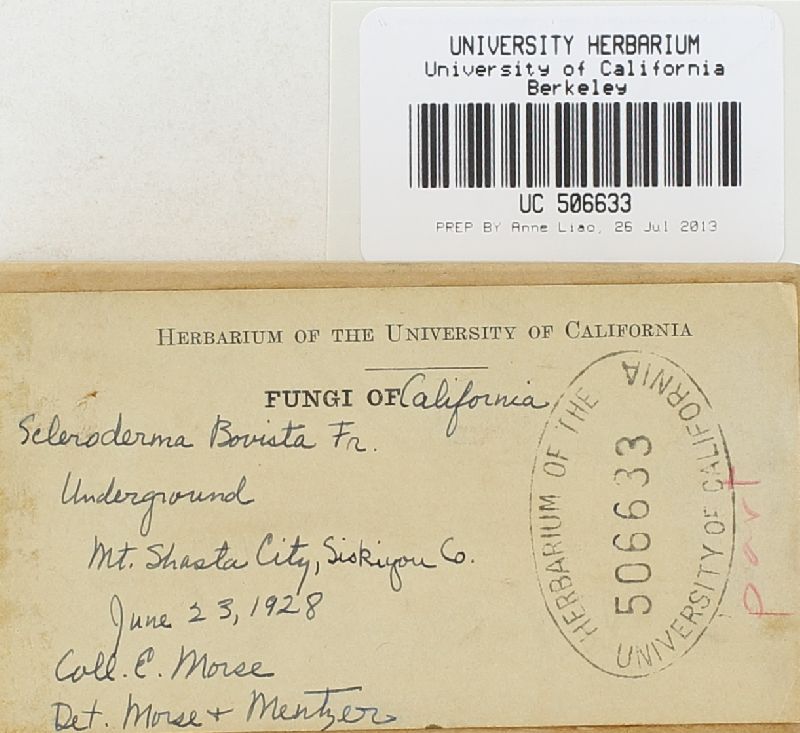 UNIVERSITY HERBARIUM
University of California
Berkeley
UC 506633
PREP BY Anne Liao, 26 Jul 2013
HERBARIUM OF THE UNIVERSITY OF CALIFORNIA
FUNGI OF California
Scleroderma Bovista Fr.
Underground
Mt. Shasta City, Siskiyou Co.
June 23, 1928
Coll. E. Morse
Det. Morse + Mentzer
HERBARIUM OF THE
UNIVERSITY OF CALIFORNIA
506633
part